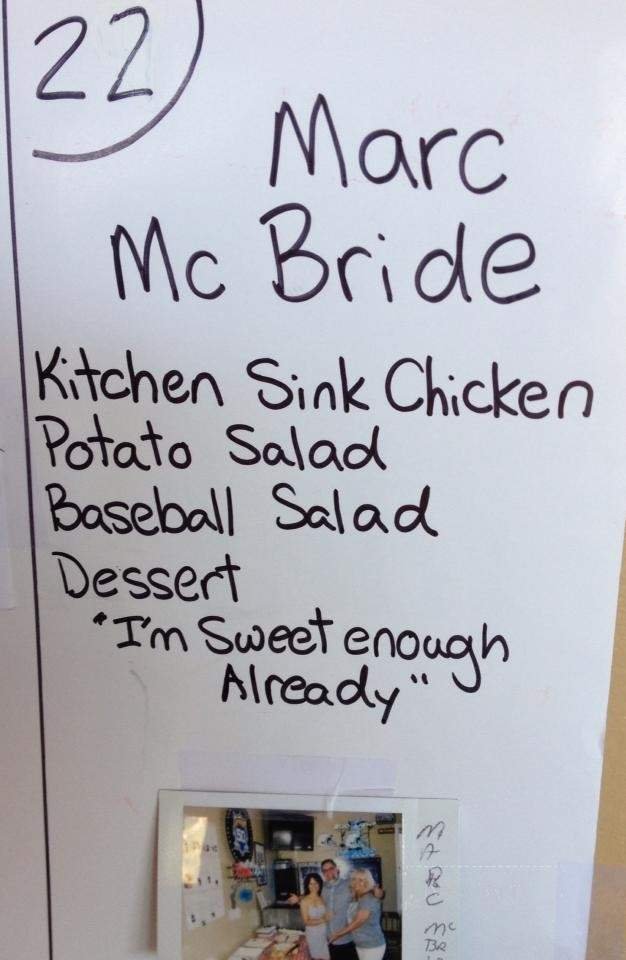 22
Marc
Mc Bride
Kitchen Sink Chicken
Potato Salad
Baseball Salad
Dessert
"I'm Sweet enough
Already"
M
A
R
C
Mc
BR